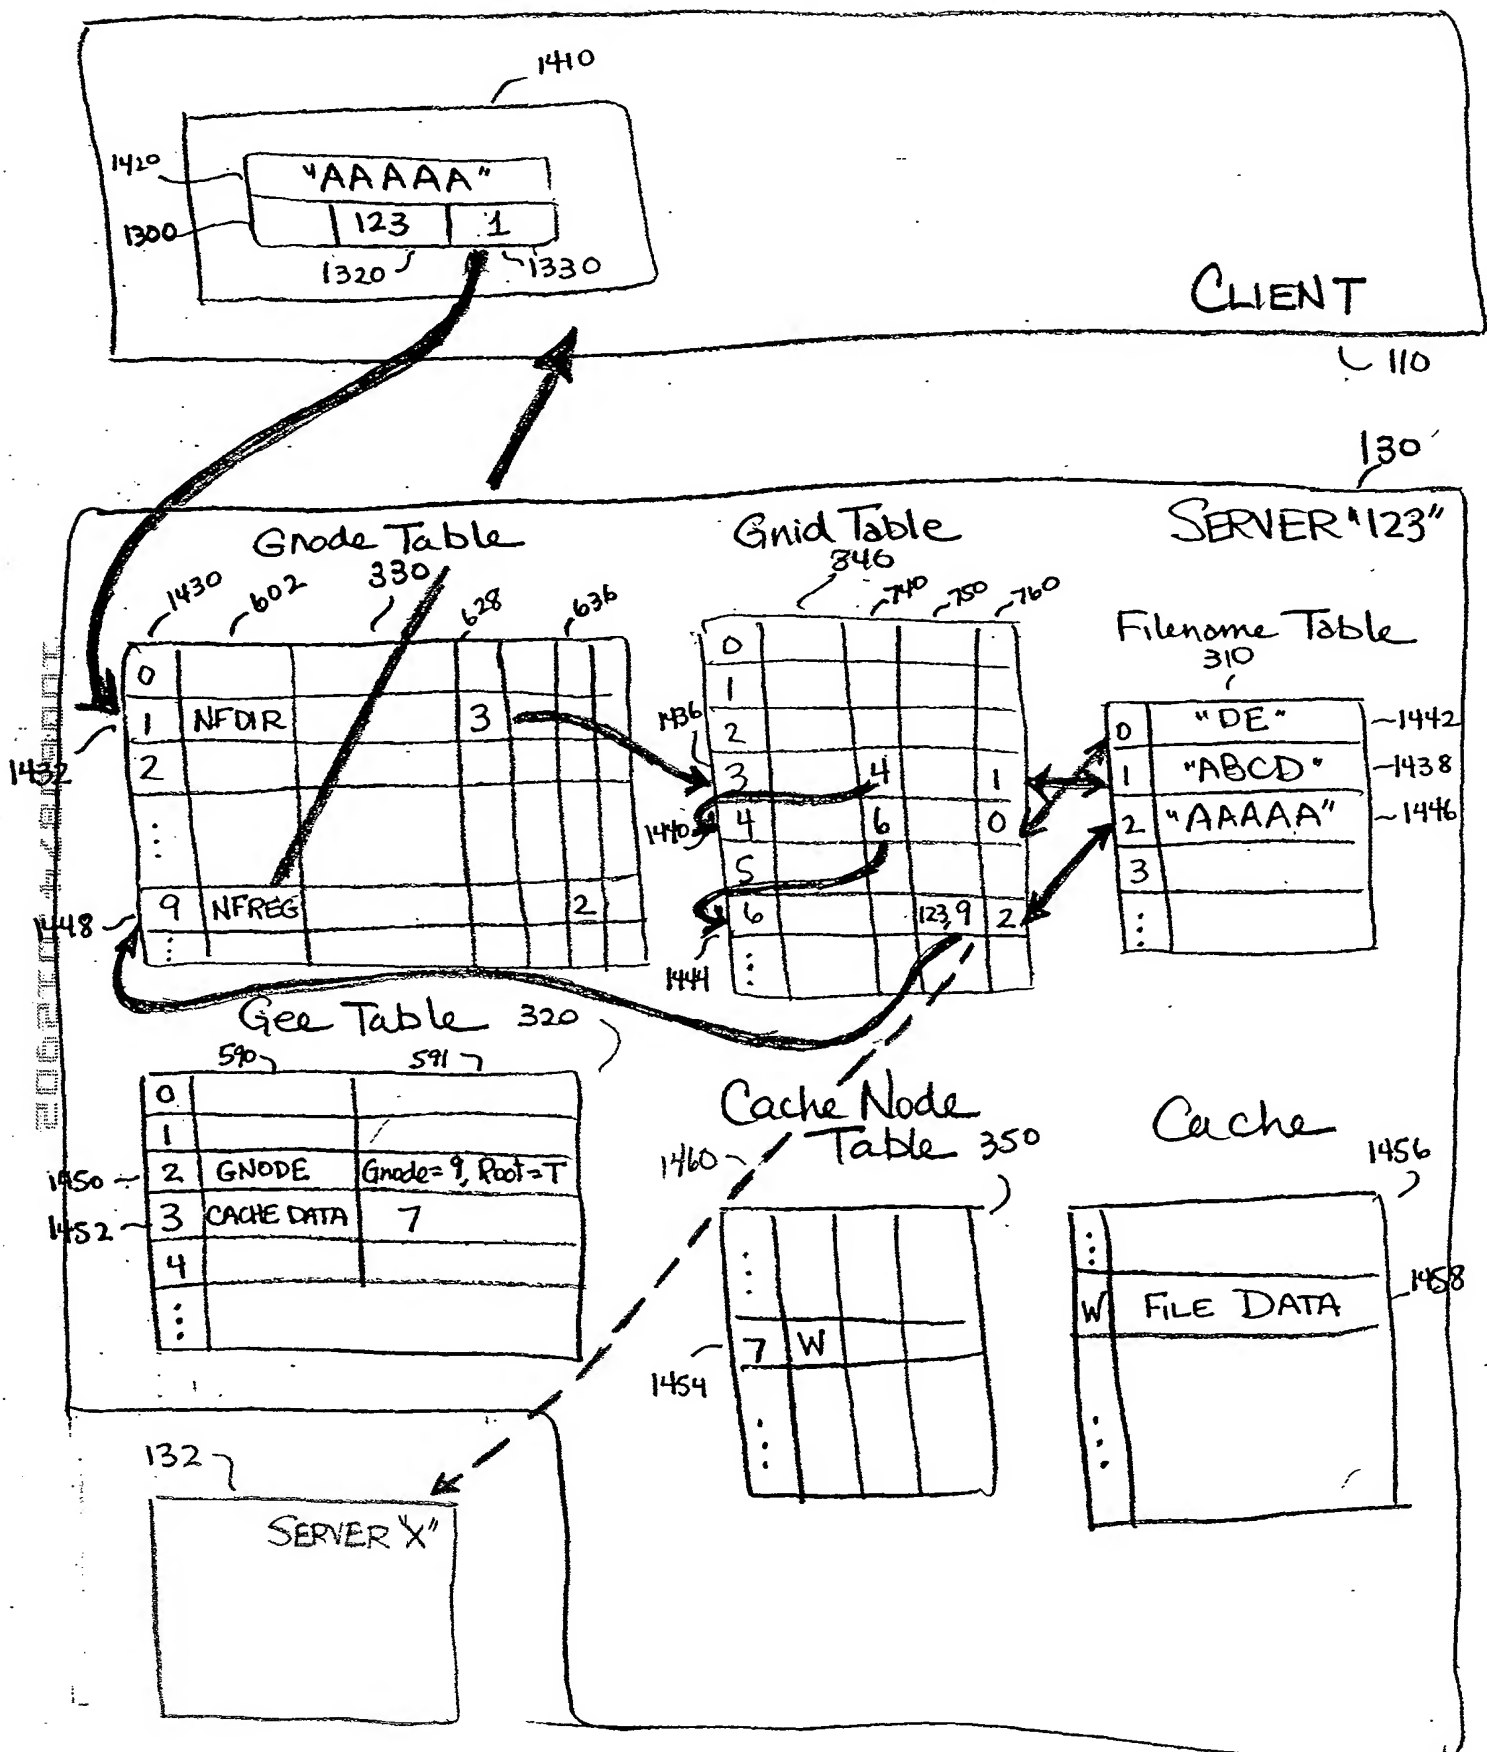 1410
1420
"AAAAA"
1300
123
1
1320
1330
CLIENT
110
130
SERVER "123"
Gnode Table
1430
602
330
628
636
0
1
NFDIR
3
1432
2
9
NFREG
2
1448
Gnid Table
346
740
750
760
0
1
2
1436
3
4
1
1440
4
6
0
5
6
123,9
2
1444
Filename Table
310
0
"DE"
1442
1
"ABCD"
1438
2
"AAAAA"
1446
3
Gee Table 320
590
591
0
1
1450
2
GNODE
Gnode=9, Root=T
1452
3
CACHE DATA
7
4
Cache Node
Table 350
1460
7
W
1454
Cache
1456
W
FILE DATA
1458
132
SERVER "X"